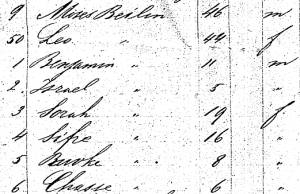 9 Moses Beilin 46 m
50 Leo " 44 f
1 Benjamin " 11 m
2 Israel " 5 "
3 Sorah " 19 f
4 Sifre " 16 "
5 " 8 "
6 Chasse " 6 "